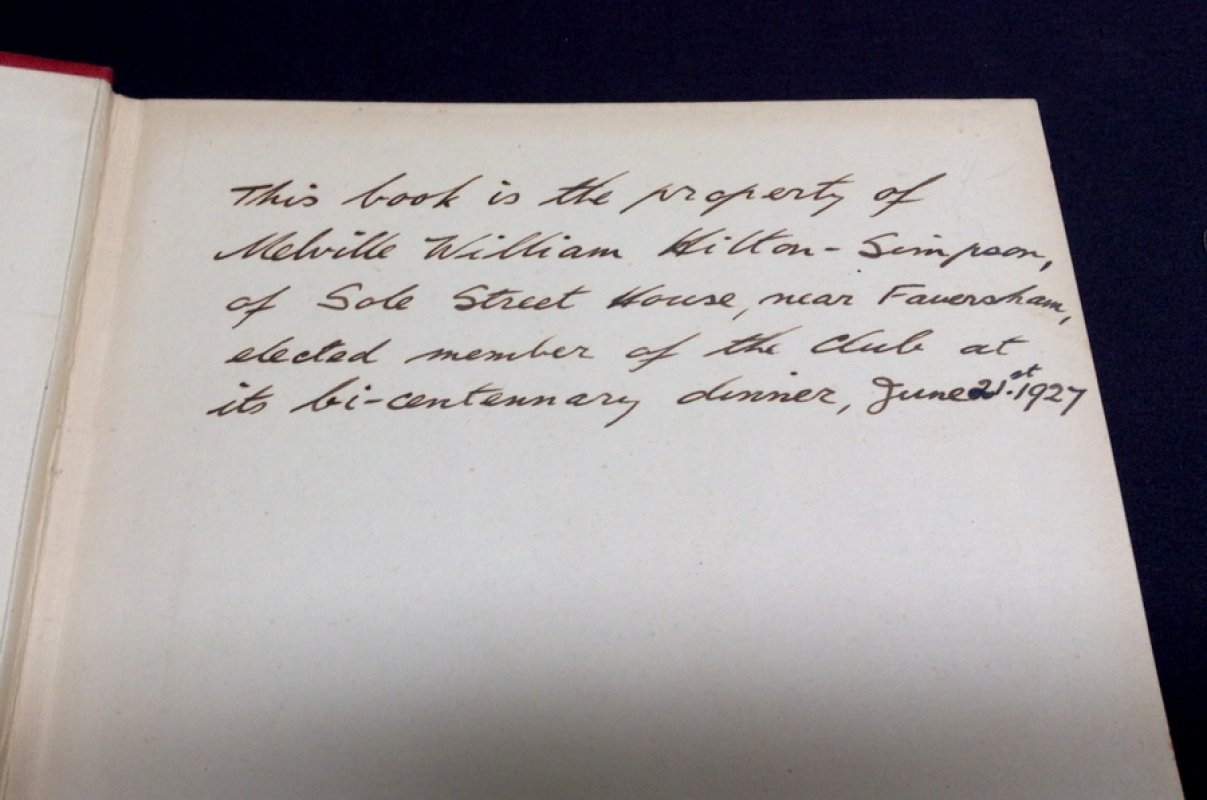 This book is the property of
Melville William Hilton-Simpson,
of Sole Street House, near Faversham,
elected member of the Club at
its bi-centennary dinner, June 21st. 1927